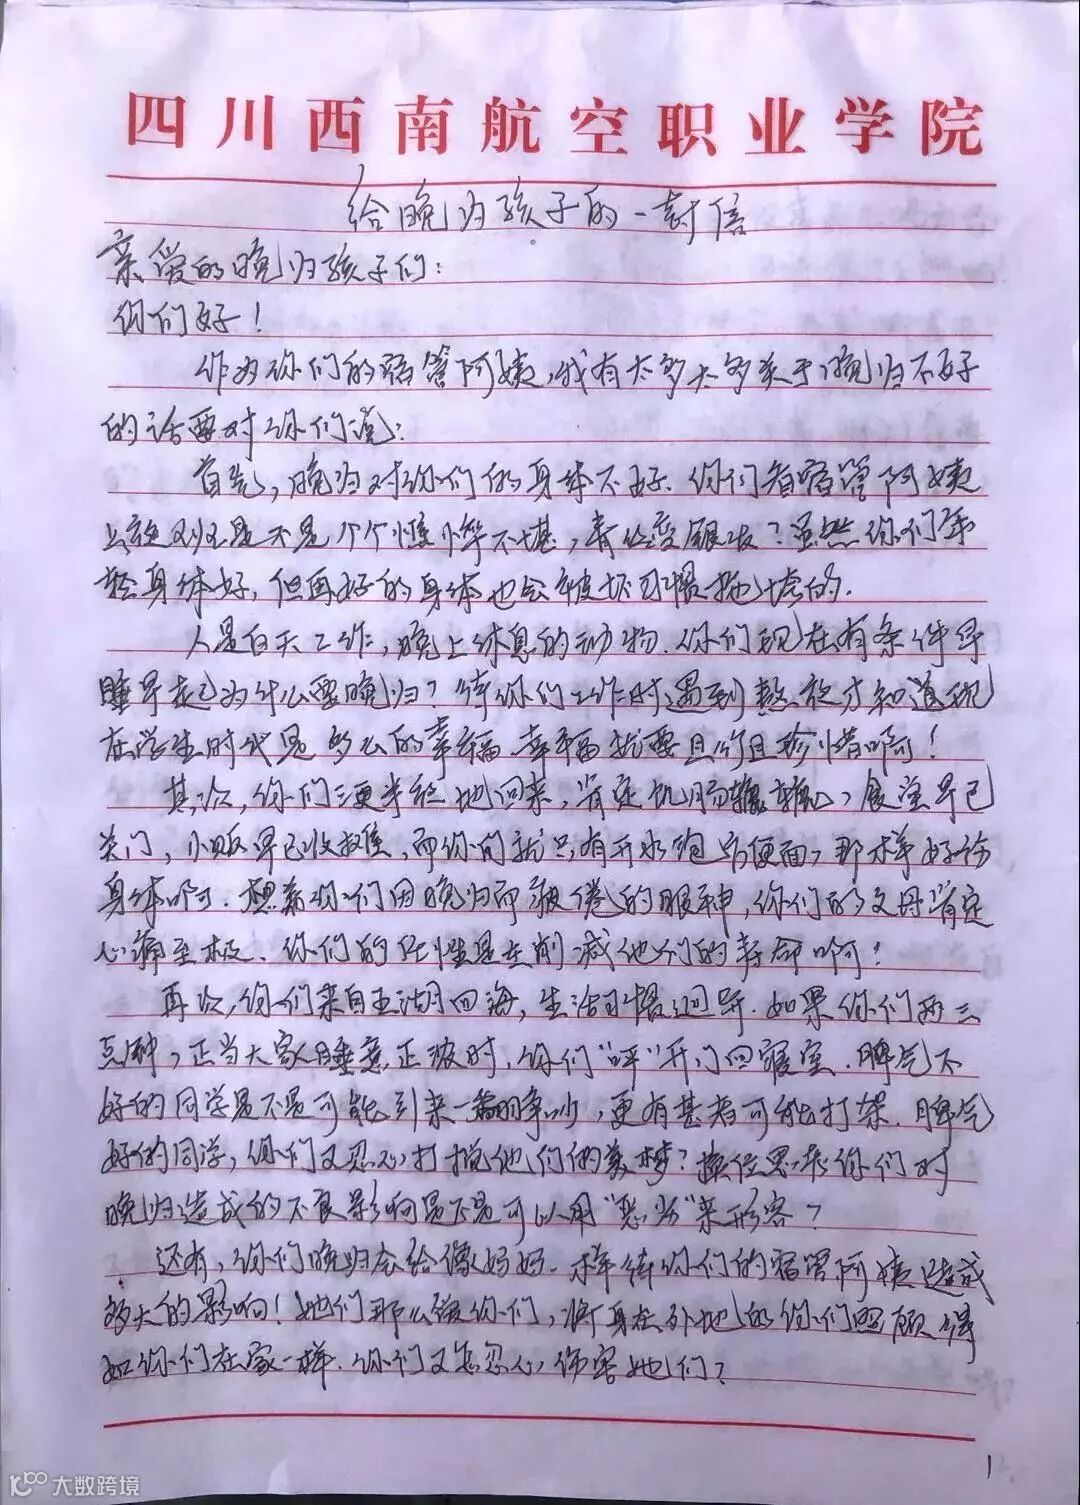 四川西南航空职业学院
给晚归孩子的一封信
亲爱的晚归孩子们：
你们好！
作为你们的宿管阿姨，我有太多太多关于晚归不好
的话要对你们说：
首先，晚归对你们的身体不好。你们看宿管阿姨
上夜班是不是个个憔悴不堪，青丝变银发？虽然你们年
轻身体好，但再好的身体也会被坏习惯拖垮的。
人是白天工作，晚上休息的动物。你们现在有条件早
睡早起为什么要晚归？待你们工作时遇到熬夜才知道现
在学生时代是多么的幸福。幸福就要且行且珍惜啊！
其次，你们三更半夜地回来，肯定饥肠辘辘，食堂早已
关门，小贩早已收摊，而你们就只有开水泡方便面，那样好伤
身体啊。想着你们因晚归而疲倦的眼神，你们的父母肯定
心痛至极。你们的任性是在削减他们的寿命啊！
再次，你们来自五湖四海，生活习惯迥异。如果你们两三
点钟，正当大家睡意正浓时，你们“呯”开门回寝室。脾气不
好的同学是不是可能引来一翻争吵，更有甚者可能打架。脾气
好的同学，你们又忍心打搅他们的美梦？换位思考你们对
晚归造成的不良影响是不是可以用“恶劣”来形容？
还有，你们晚归会给像妈妈一样待你们的宿管阿姨造成
多大的影响！她们那么爱你们，将身在外地的你们照顾得
如你们在家一样。你们又怎忍心伤害她们？
1
大数跨境